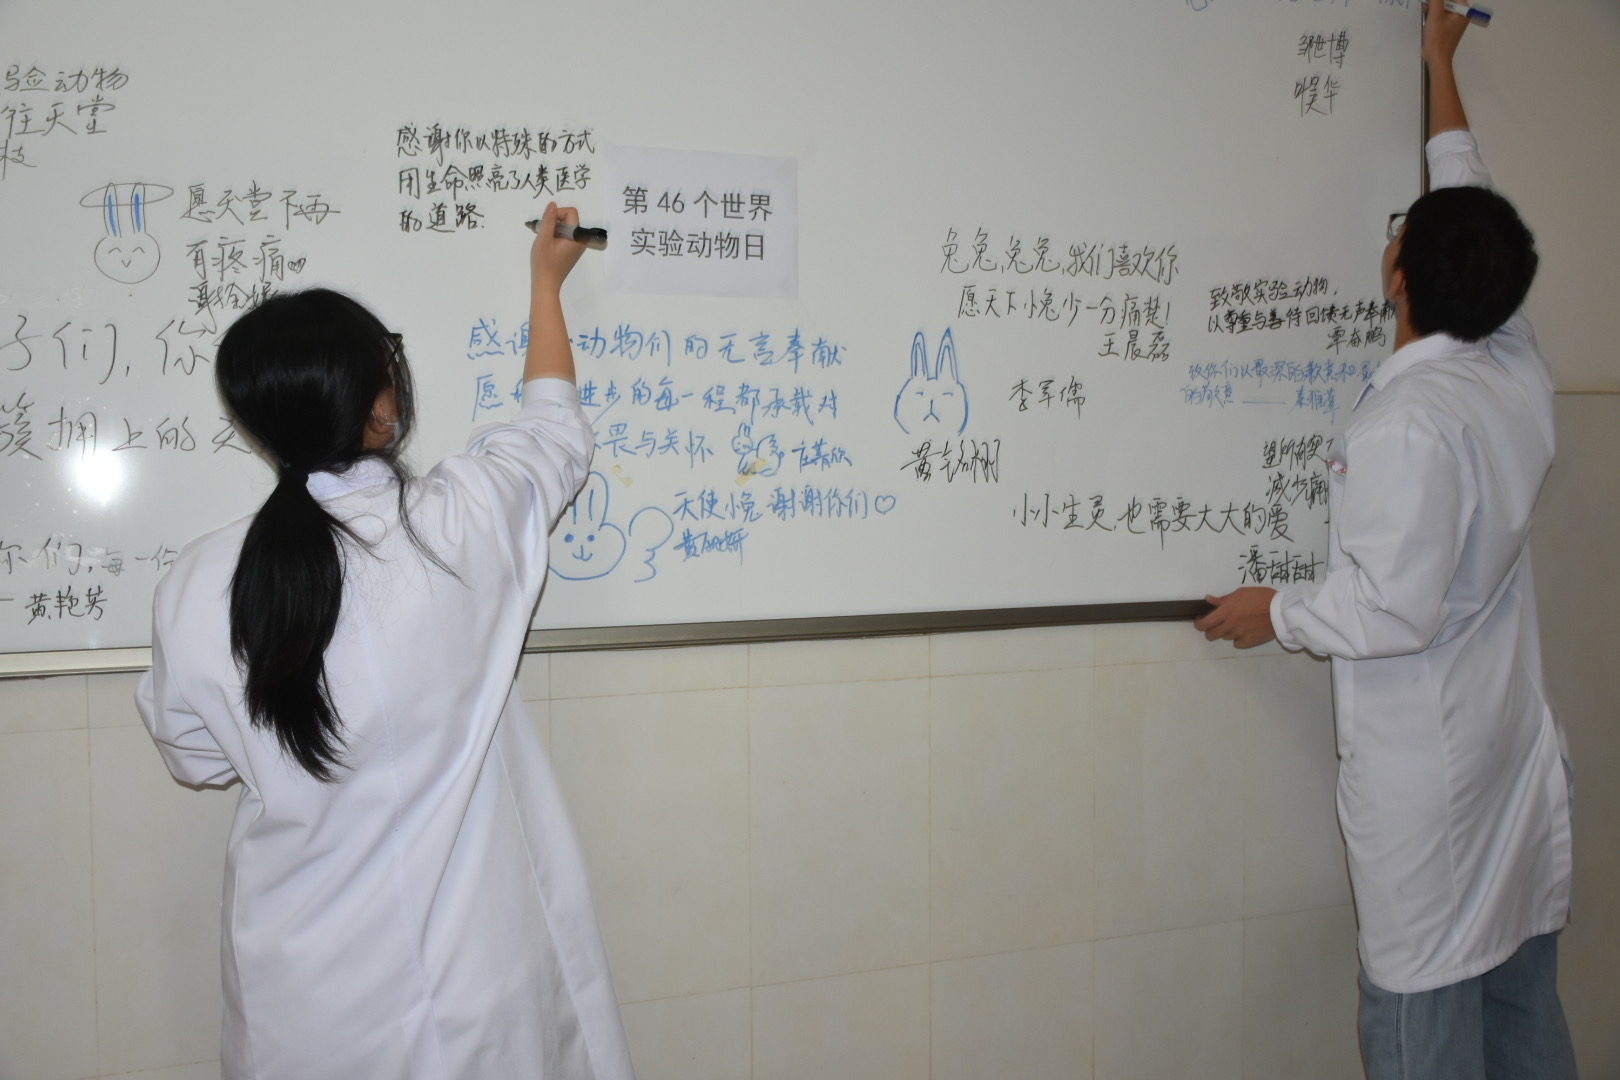 验动物
往天堂
愿天堂不再
有疼痛
子们,你
簇拥上的
你们,每一份
黄艳芳
感谢你以特殊的方式
用生命照亮了人类医学
的道路.
第 46 个世界
实验动物日
感谢 动物们的无言奉献
愿 进步的每一程都承载对
畏与关怀
天使小兔谢谢你们♡
兔兔,兔兔,我们喜欢你
愿天下小兔少一分痛楚!
王晨磊
李军儒
小小生灵,也需要大大的爱
潘甜甜
致敬实验动物,
以尊重与善待回馈无声奉献
覃奋鹏
致你们以最深的歉意和最
的敬意——
减少痛
邹世博